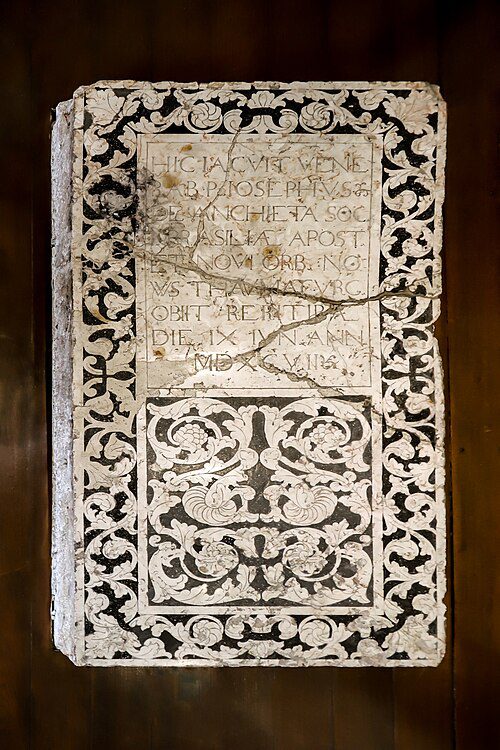 HIC IACVIT VENE
RAB. P. IOSEPHVS
DE ANCHIETA SOC
BRASILIÆ APOST.
ET NOVI ORB. NO
VS THAVMATVRG
OBIIT RERITIBÆ
DIE IX IVN. ANN
MDXCVII